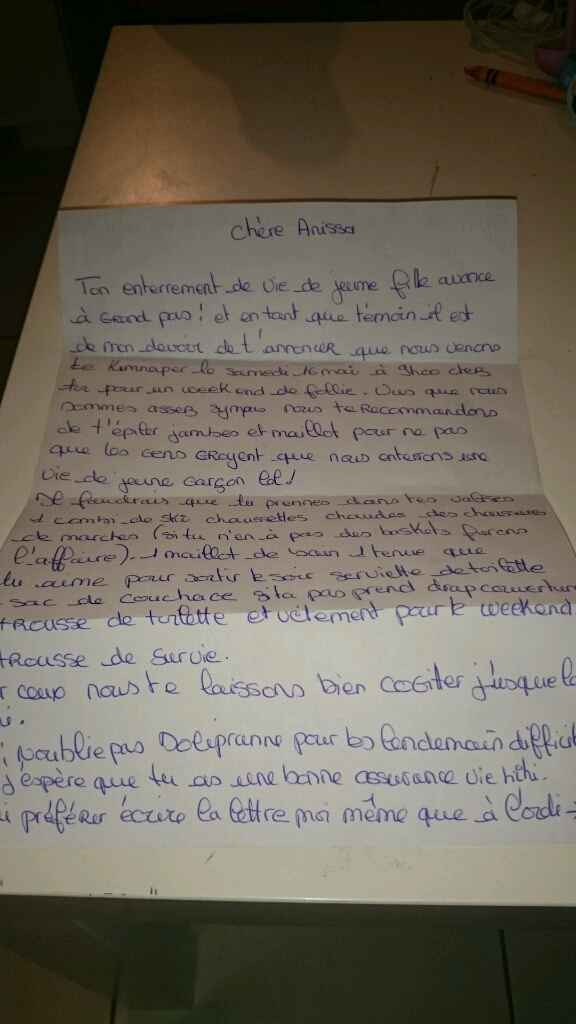 Chère Anissa
Ton enterrement de vie de jeune fille avance
à Grand pas! et en tant que témoin il est
de mon devoir de t'annoncer que nous venons
te Kinnaper le samedi 16 mai à 9h00 chez
toi pour un week end de follie. Vus que nous
sommes assez sympas nous te Recommandons
de t'épiler jambes et maillot pour ne pas
que les Gens croyent que nous enterrons une
vie de jeune Garçon lol!
Il faudrais que tu prennes dans tes valises
1 combi de ski chaussettes chaudes des chaussures
de marches (si tu n'en à pas des baskets ferons
l'affaire). 1 maillot de bain 1 tenue que
tu aime pour sortir le soir serviette de toilette
sac de couchage si ta pas prend drap couverture
trousse de toilette et vêtement pour le weekend.
trousse de survie.
coup nous te laissons bien coGiter j'usque la
n'oublie pas Dolipranne pour les lendemain difficil
J'espère que tu as une bonne assurance vie hihi.
préférer écrire la lettre moi même que à l'ordi